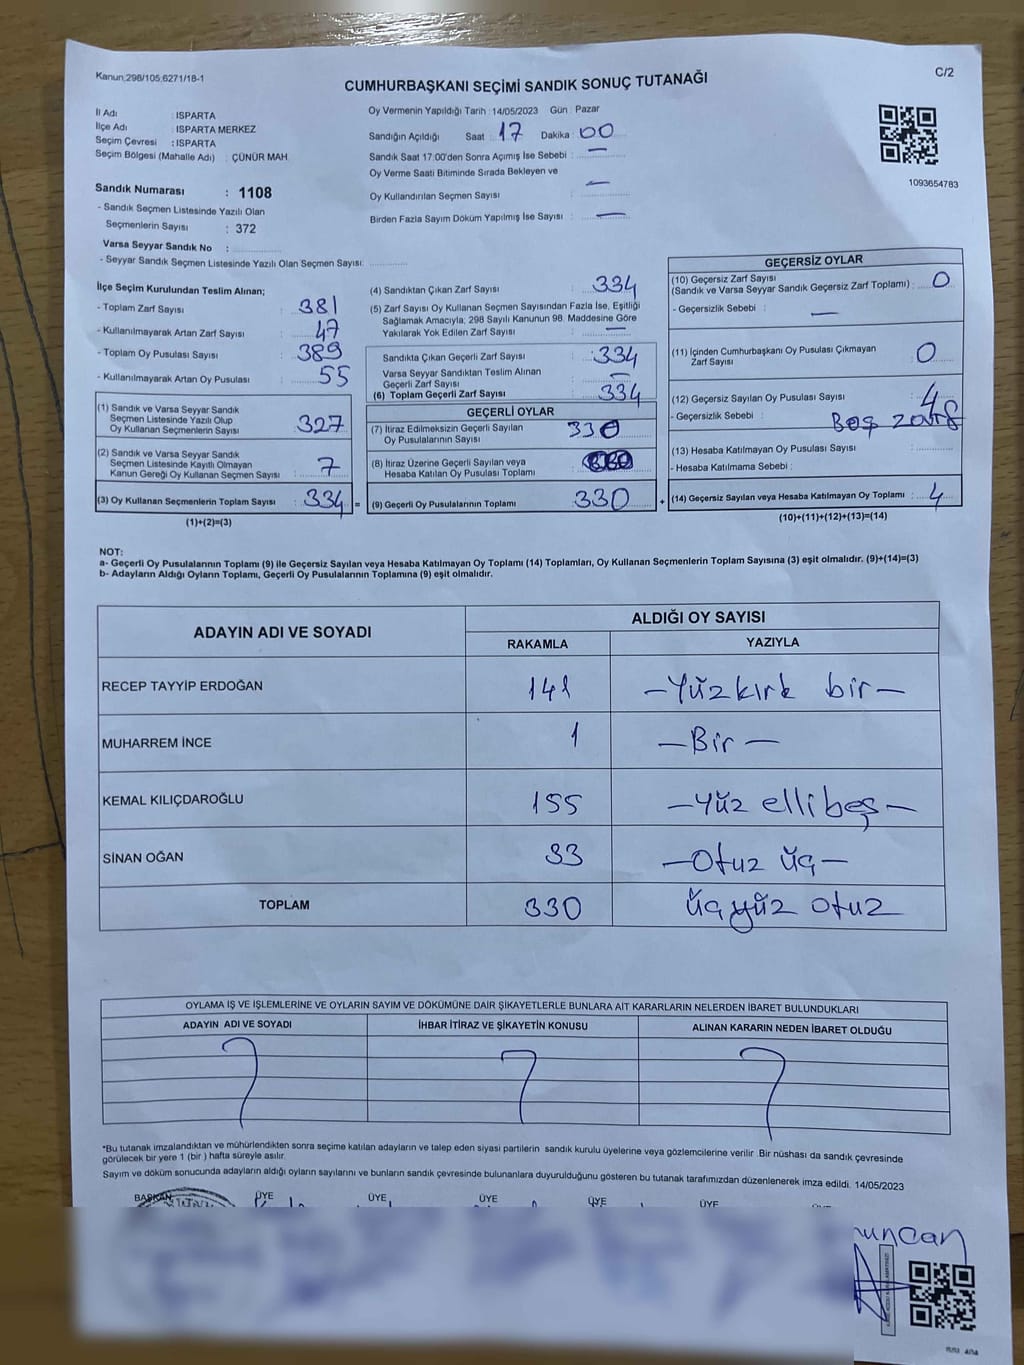 Kanun;298/105,6271/18-1
C/2
CUMHURBAŞKANI SEÇİMİ SANDIK SONUÇ TUTANAĞI
İl Adı : ISPARTA
İlçe Adı : ISPARTA MERKEZ
Seçim Çevresi : ISPARTA
Seçim Bölgesi (Mahalle Adı) : ÇÜNÜR MAH.
Oy Vermenin Yapıldığı Tarih : 14/05/2023 Gün : Pazar
Sandığın Açıldığı Saat : 17 Dakika : 00
Sandık Saat 17:00'den Sonra Açımış İse Sebebi : —
Oy Verme Saati Bitiminde Sırada Bekleyen ve
Oy Kullandırılan Seçmen Sayısı —
Birden Fazla Sayım Döküm Yapılmış İse Sayısı : —
1093654783
Sandık Numarası : 1108
- Sandık Seçmen Listesinde Yazılı Olan
Seçmenlerin Sayısı : 372
Varsa Seyyar Sandık No :
- Seyyar Sandık Seçmen Listesinde Yazılı Olan Seçmen Sayısı:
İlçe Seçim Kurulundan Teslim Alınan;
- Toplam Zarf Sayısı : 381
- Kullanılmayarak Artan Zarf Sayısı : 47
- Toplam Oy Pusulası Sayısı : 389
- Kullanılmayarak Artan Oy Pusulası : 55
(1) Sandık ve Varsa Seyyar Sandık
Seçmen Listesinde Yazılı Olup
Oy Kullanan Seçmenlerin Sayısı : 327
(2) Sandık ve Varsa Seyyar Sandık
Seçmen Listesinde Kayıtlı Olmayan
Kanun Gereği Oy Kullanan Seçmen Sayısı : 7
(3) Oy Kullanan Seçmenlerin Toplam Sayısı : 334 =
(1)+(2)=(3)
(4) Sandıktan Çıkan Zarf Sayısı : 334
(5) Zarf Sayısı Oy Kullanan Seçmen Sayısından Fazla İse, Eşitliği
Sağlamak Amacıyla; 298 Sayılı Kanunun 98. Maddesine Göre
Yakılarak Yok Edilen Zarf Sayısı : —
Sandıkta Çıkan Geçerli Zarf Sayısı : 334
Varsa Seyyar Sandıktan Teslim Alınan
Geçerli Zarf Sayısı : —
(6) Toplam Geçerli Zarf Sayısı : 334
GEÇERLİ OYLAR
(7) İtiraz Edilmeksizin Geçerli Sayılan
Oy Pusulalarının Sayısı : 330
(8) İtiraz Üzerine Geçerli Sayılan veya
Hesaba Katılan Oy Pusulası Toplamı :
(9) Geçerli Oy Pusulalarının Toplamı : 330 +
GEÇERSİZ OYLAR
(10) Geçersiz Zarf Sayısı
(Sandık ve Varsa Seyyar Sandık Geçersiz Zarf Toplamı) : 0
- Geçersizlik Sebebi : —
(11) İçinden Cumhurbaşkanı Oy Pusulası Çıkmayan
Zarf Sayısı : 0
(12) Geçersiz Sayılan Oy Pusulası Sayısı : 4
- Geçersizlik Sebebi : Boş zarf
(13) Hesaba Katılmayan Oy Pusulası Sayısı :
- Hesaba Katılmama Sebebi :
(14) Geçersiz Sayılan veya Hesaba Katılmayan Oy Toplamı : 4
(10)+(11)+(12)+(13)=(14)
NOT:
a- Geçerli Oy Pusulalarının Toplamı (9) ile Geçersiz Sayılan veya Hesaba Katılmayan Oy Toplamı (14) Toplamları, Oy Kullanan Seçmenlerin Toplam Sayısına (3) eşit olmalıdır. (9)+(14)=(3)
b- Adayların Aldığı Oyların Toplamı, Geçerli Oy Pusulalarının Toplamına (9) eşit olmalıdır.
ADAYIN ADI VE SOYADI
ALDIĞI OY SAYISI
RAKAMLA YAZIYLA
RECEP TAYYİP ERDOĞAN 141 —Yüzkırk bir—
MUHARREM İNCE 1 —Bir—
KEMAL KILIÇDAROĞLU 155 —Yüz ellibeş—
SİNAN OĞAN 33 —Otuz üç—
TOPLAM 330 Üçyüz otuz
OYLAMA İŞ VE İŞLEMLERİNE VE OYLARIN SAYIM VE DÖKÜMÜNE DAİR ŞİKAYETLERLE BUNLARA AİT KARARLARIN NELERDEN İBARET BULUNDUKLARI
ADAYIN ADI VE SOYADI İHBAR İTİRAZ VE ŞİKAYETİN KONUSU ALINAN KARARIN NEDEN İBARET OLDUĞU
*Bu tutanak imzalandıktan ve mühürlendikten sonra seçime katılan adayların ve talep eden siyasi partilerin sandık kurulu üyelerine veya gözlemcilerine verilir. Bir nüshası da sandık çevresinde
görülecek bir yere 1 (bir ) hafta süreyle asılır.
Sayım ve döküm sonucunda adayların aldığı oyların sayılarını ve bunların sandık çevresinde bulunanlara duyurulduğunu gösteren bu tutanak tarafımızdan düzenlenerek imza edildi. 14/05/2023
BAŞKAN ÜYE ÜYE ÜYE ÜYE ÜYE